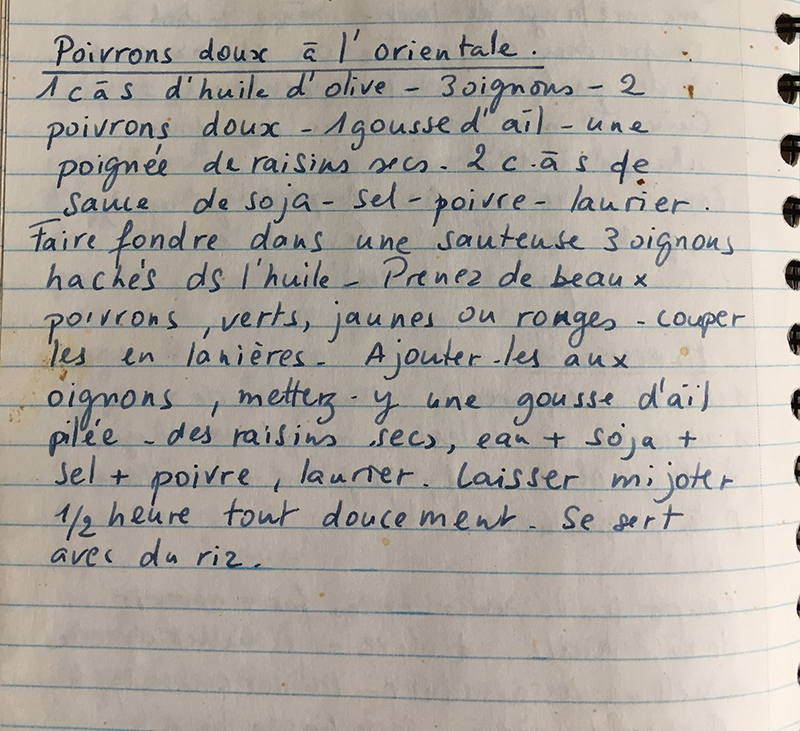 Poivrons doux à l'orientale.
1 c à s d'huile d'olive - 3 oignons - 2
poivrons doux - 1 gousse d'ail - une
poignée de raisins secs. 2 c. à s de
sauce de soja - sel - poivre - laurier.
Faire fondre dans une sauteuse 3 oignons
hachés ds l'huile - Prenez de beaux
poivrons, verts, jaunes ou rouges - couper
les en lanières - Ajouter-les aux
oignons, mettez-y une gousse d'ail
pilée - des raisins secs, eau + soja +
sel + poivre, laurier. Laisser mijoter
1/2 heure tout doucement. Se sert
avec du riz.